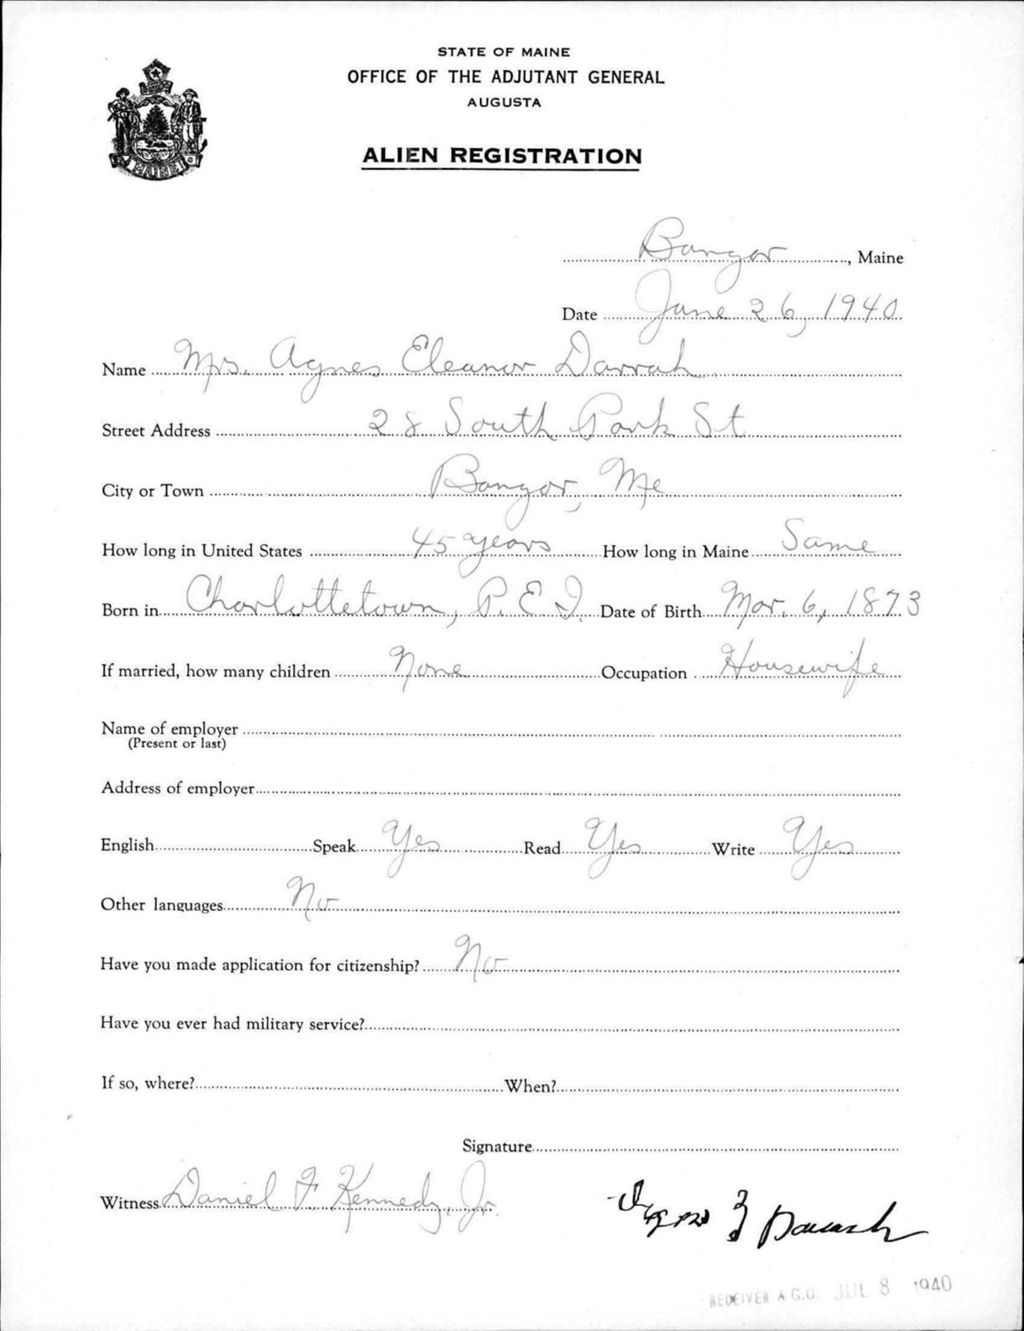 STATE OF MAINE
OFFICE OF THE ADJUTANT GENERAL
AUGUSTA
ALIEN REGISTRATION
MAINE
Bangor, Maine
Date June 26, 1940
Name Mrs. Agnes Eleanor Darrah
Street Address 28 South Park St
City or Town Bangor, Me
How long in United States 45 years How long in Maine Same
Born in Charlottetown, P.E.I. Date of Birth Mar. 6, 1873
If married, how many children None Occupation Housewife
Name of employer
(Present or last)
Address of employer
English Speak Yes Read Yes Write Yes
Other languages No
Have you made application for citizenship? No
Have you ever had military service?
If so, where? When?
Signature
Witness Daniel F. Kennedy, Jr.
Agnes E Darrah
RECEIVED A.G.O. JUL 8 1940